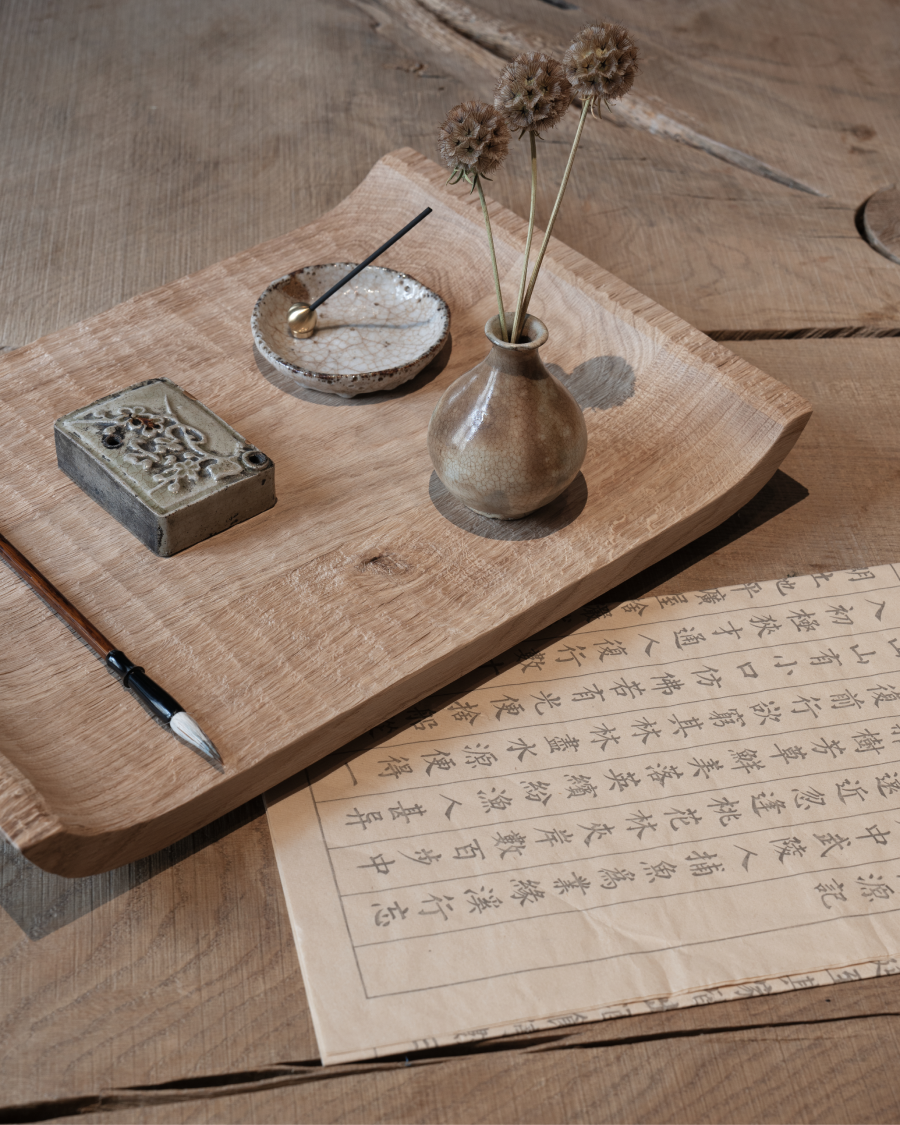 源記
中武陵人捕魚為業緣溪行忘
近忽逢桃花林夾岸數百步中
樹芳草鮮美落英繽紛漁人甚異
復前行欲窮其林林盡水源便得一
山有小口仿佛若有光便捨船
入初極狹才通人復行數
土地平曠屋舍